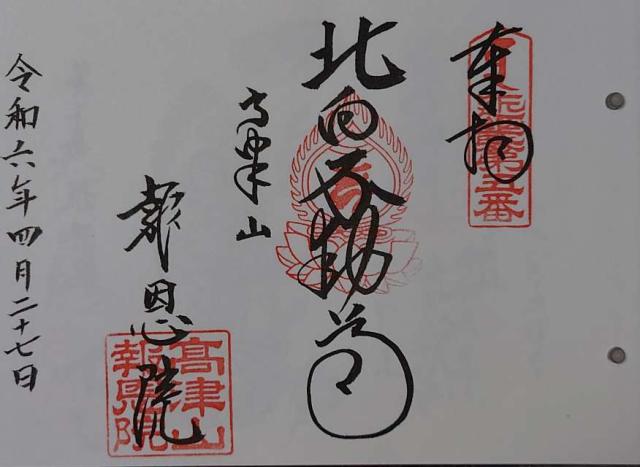 奉拝
第五番
北向不動尊
高津山
報恩院
高津山
報恩院
令和六年四月二十七日